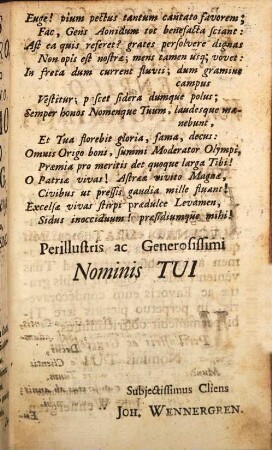 Euge! pium pectus tantum cantato favorem;
Fac, Gens Aonidum tot benefacta sciant:
Ast ea quis referet? grates persolvere dignas
Non opis est nostræ; mens tamen usq; vovet:
In freta dum current fluvii; dum gramine
campus
Vestitur; pascet sidera dumque polus;
Semper honos Nomenque Tuum, laudesque ma-
nebunt,
Et Tua florebit gloria, fama, decus:
Omnis Origo boni, summi Moderator Olympi,
Præmia pro meritis det quoque larga Tibi!
O Patriæ vivas! Astræe vivito Magnæ,
Civibus ut pressis gaudia mille fluant!
Excelsæ vivas stirpi prædulce Levamen,
Sidus inocciduum præsidiumque mihi!
Perillustris ac Generosissimi
Nominis TUI
Subjectissimus Cliens
JOH. WENNERGREN.